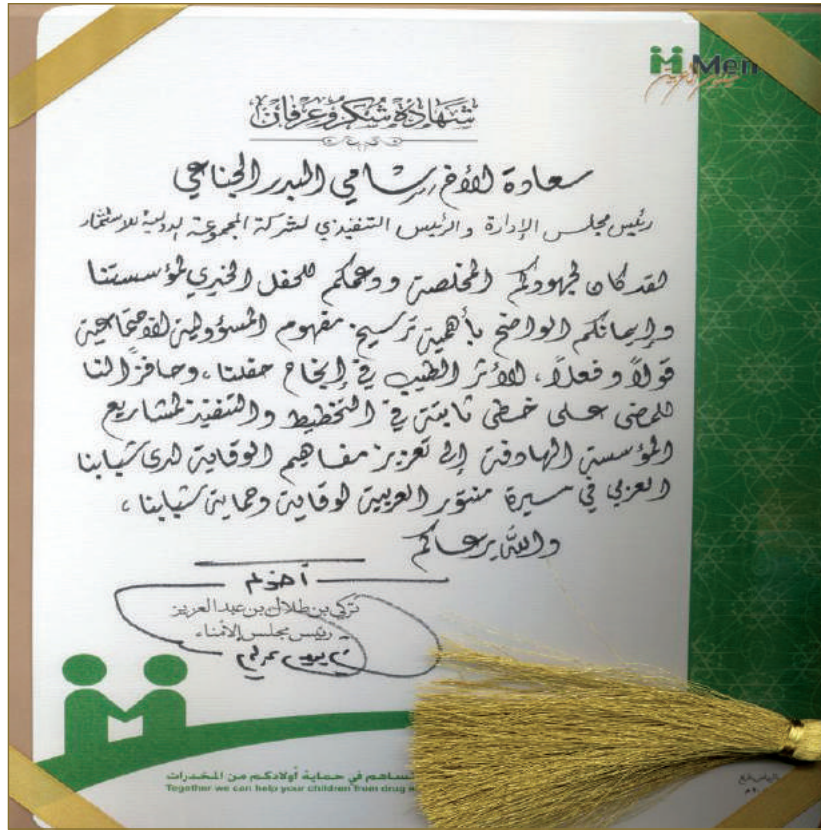 Men
منتور العربية
شهادة شكر وعرفان
سعادة الأخ سامي البدر الجناعي
رئيس مجلس الإدارة والرئيس التنفيذي لشركة المجموعة الدولية للاستثمار
لقد كان لجهودكم المخلصة ودعمكم للحفل الخيري لمؤسستنا
وإيمانكم الواضح بأهمية ترسيخ مفهوم المسؤولية الاجتماعية
قولاً وفعلاً، الأثر الطيب في إنجاح حفلنا، وحافزاً لنا
للمضى على خطى ثابتة في التخطيط والتنفيذ لمشاريع
المؤسسة الهادفة إلى تعزيز مفاهيم الوقاية لدى شبابنا
العربي في مسيرة منتور العربية لوقاية وحماية شبابنا،
والله يرعاكم
أخوكم
تركي بن طلال بن عبدالعزيز
رئيس مجلس الأمناء
تساهم في حماية أولادكم من المخدرات
Together we can help your children from drug